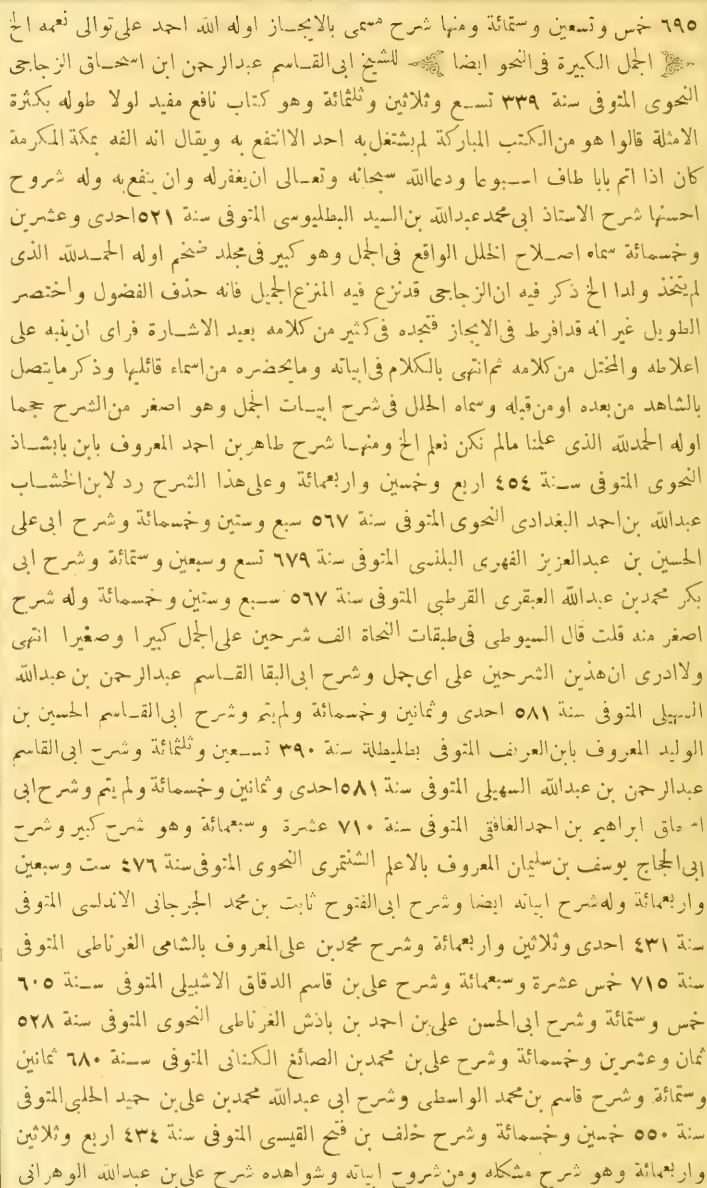 ٦٩٥ خمس وتسعين وستمائة ومنها شرح مسمى بالايجاز اوله الله احمد على توالى نعمه الخ
الجمل الكبيرة فى النحو ايضا للشيخ ابى القاسم عبدالرحمن ابن اسحاق الزجاجى
النحوى المتوفى سنة ٣٣٩ تسع وثلاثين وثلثمائة وهو كتاب نافع مفيد لولا طوله بكثرة
الامثلة قالوا هو من الكتب المباركة لم يشتغل به احد الاانتفع به ويقال انه الفه بمكة المكرمة
كان اذا اتم بابا طاف اسبوعا ودعاالله سبحانه وتعالى ان يغفرله وان ينفع به وله شروح
احسنها شرح الاستاذ ابى محمد عبدالله بن السيد البطليوسى المتوفى سنة ٥٢١ احدى وعشرين
وخمسمائة سماه اصلاح الخلل الواقع فى الجمل وهو كبير فى مجلد ضخم اوله الحمدلله الذى
لم يتخذ ولدا الخ ذكر فيه ان الزجاجى قدنزع فيه المنزع الجميل فانه حذف الفضول واختصر
الطويل غير انه قدافرط فى الايجاز فتجده فى كثير من كلامه بعيد الاشارة فراى ان ينبه على
اغلاطه والمختل من كلامه ثم انتهى بالكلام فى ابياته ومايحضره من اسماء قائليها وذكر مايتصل
بالشاهد من بعده اومن قبله وسماه الحلل فى شرح ابيات الجمل وهو اصغر من الشرح حجما
اوله الحمدلله الذى علمنا مالم نكن نعلم الخ ومنها شرح طاهر بن احمد المعروف بابن بابشاذ
النحوى المتوفى سنة ٤٥٤ اربع وخمسين واربعمائة وعلى هذا الشرح رد لابن الخشاب
عبدالله بن احمد البغدادى النحوى المتوفى سنة ٥٦٧ سبع وستين وخمسمائة وشرح ابى على
الحسين بن عبدالعزيز الفهرى البلنسى المتوفى سنة ٦٧٩ تسع وسبعين وستمائة وشرح ابى
بكر محمد بن عبدالله العبقرى القرطبى المتوفى سنة ٥٦٧ سبع وستين وخمسمائة وله شرح
اصغر منه قلت قال السيوطى فى طبقات النحاة الف شرحين على الجمل كبيرا وصغيرا انتهى
ولاادرى ان هذين الشرحين على اى جمل وشرح ابى البقا القاسم عبدالرحمن بن عبدالله
السهيلى المتوفى سنة ٥٨١ احدى وثمانين وخمسمائة ولم يتم وشرح ابى القاسم الحسين بن
الوليد المعروف بابن العريف المتوفى بطليطلة سنة ٣٩٠ تسعين وثلثمائة وشرح ابى القاسم
عبدالرحمن بن عبدالله السهيلى المتوفى سنة ٥٨١ احدى وثمانين وخمسمائة ولم يتم وشرح ابى
اسحاق ابراهيم بن احمدالغافقى المتوفى سنة ٧١٠ عشرة وسبعمائة وهو شرح كبير وشرح
ابى الحجاج يوسف بن سليمان المعروف بالاعلم الشنتمرى النحوى المتوفى سنة ٤٧٦ ست وسبعين
واربعمائة وله شرح ابياته ايضا وشرح ابى الفتوح ثابت بن محمد الجرجانى الاندلسى المتوفى
سنة ٤٣١ احدى وثلاثين واربعمائة وشرح محمد بن على المعروف بالشامى الغرناطى المتوفى
سنة ٧١٥ خمس عشرة وسبعمائة وشرح على بن قاسم الدقاق الاشبيلى المتوفى سنة ٦٠٥
خمس وستمائة وشرح ابى الحسن على بن احمد بن باذش الغرناطى النحوى المتوفى سنة ٥٢٨
ثمان وعشرين وخمسمائة وشرح على بن محمد بن الصائغ الكنانى المتوفى سنة ٦٨٠ ثمانين
وستمائة وشرح قاسم بن محمد الواسطى وشرح ابى عبدالله محمد بن على بن حميد الحلبى المتوفى
سنة ٥٥٠ خمسين وخمسمائة وشرح خلف بن فتح القيسى المتوفى سنة ٤٣٤ اربع وثلاثين
واربعمائة وهو شرح مشكله ومن شروح ابياته وشواهده شرح على بن عبدالله الوهرانى